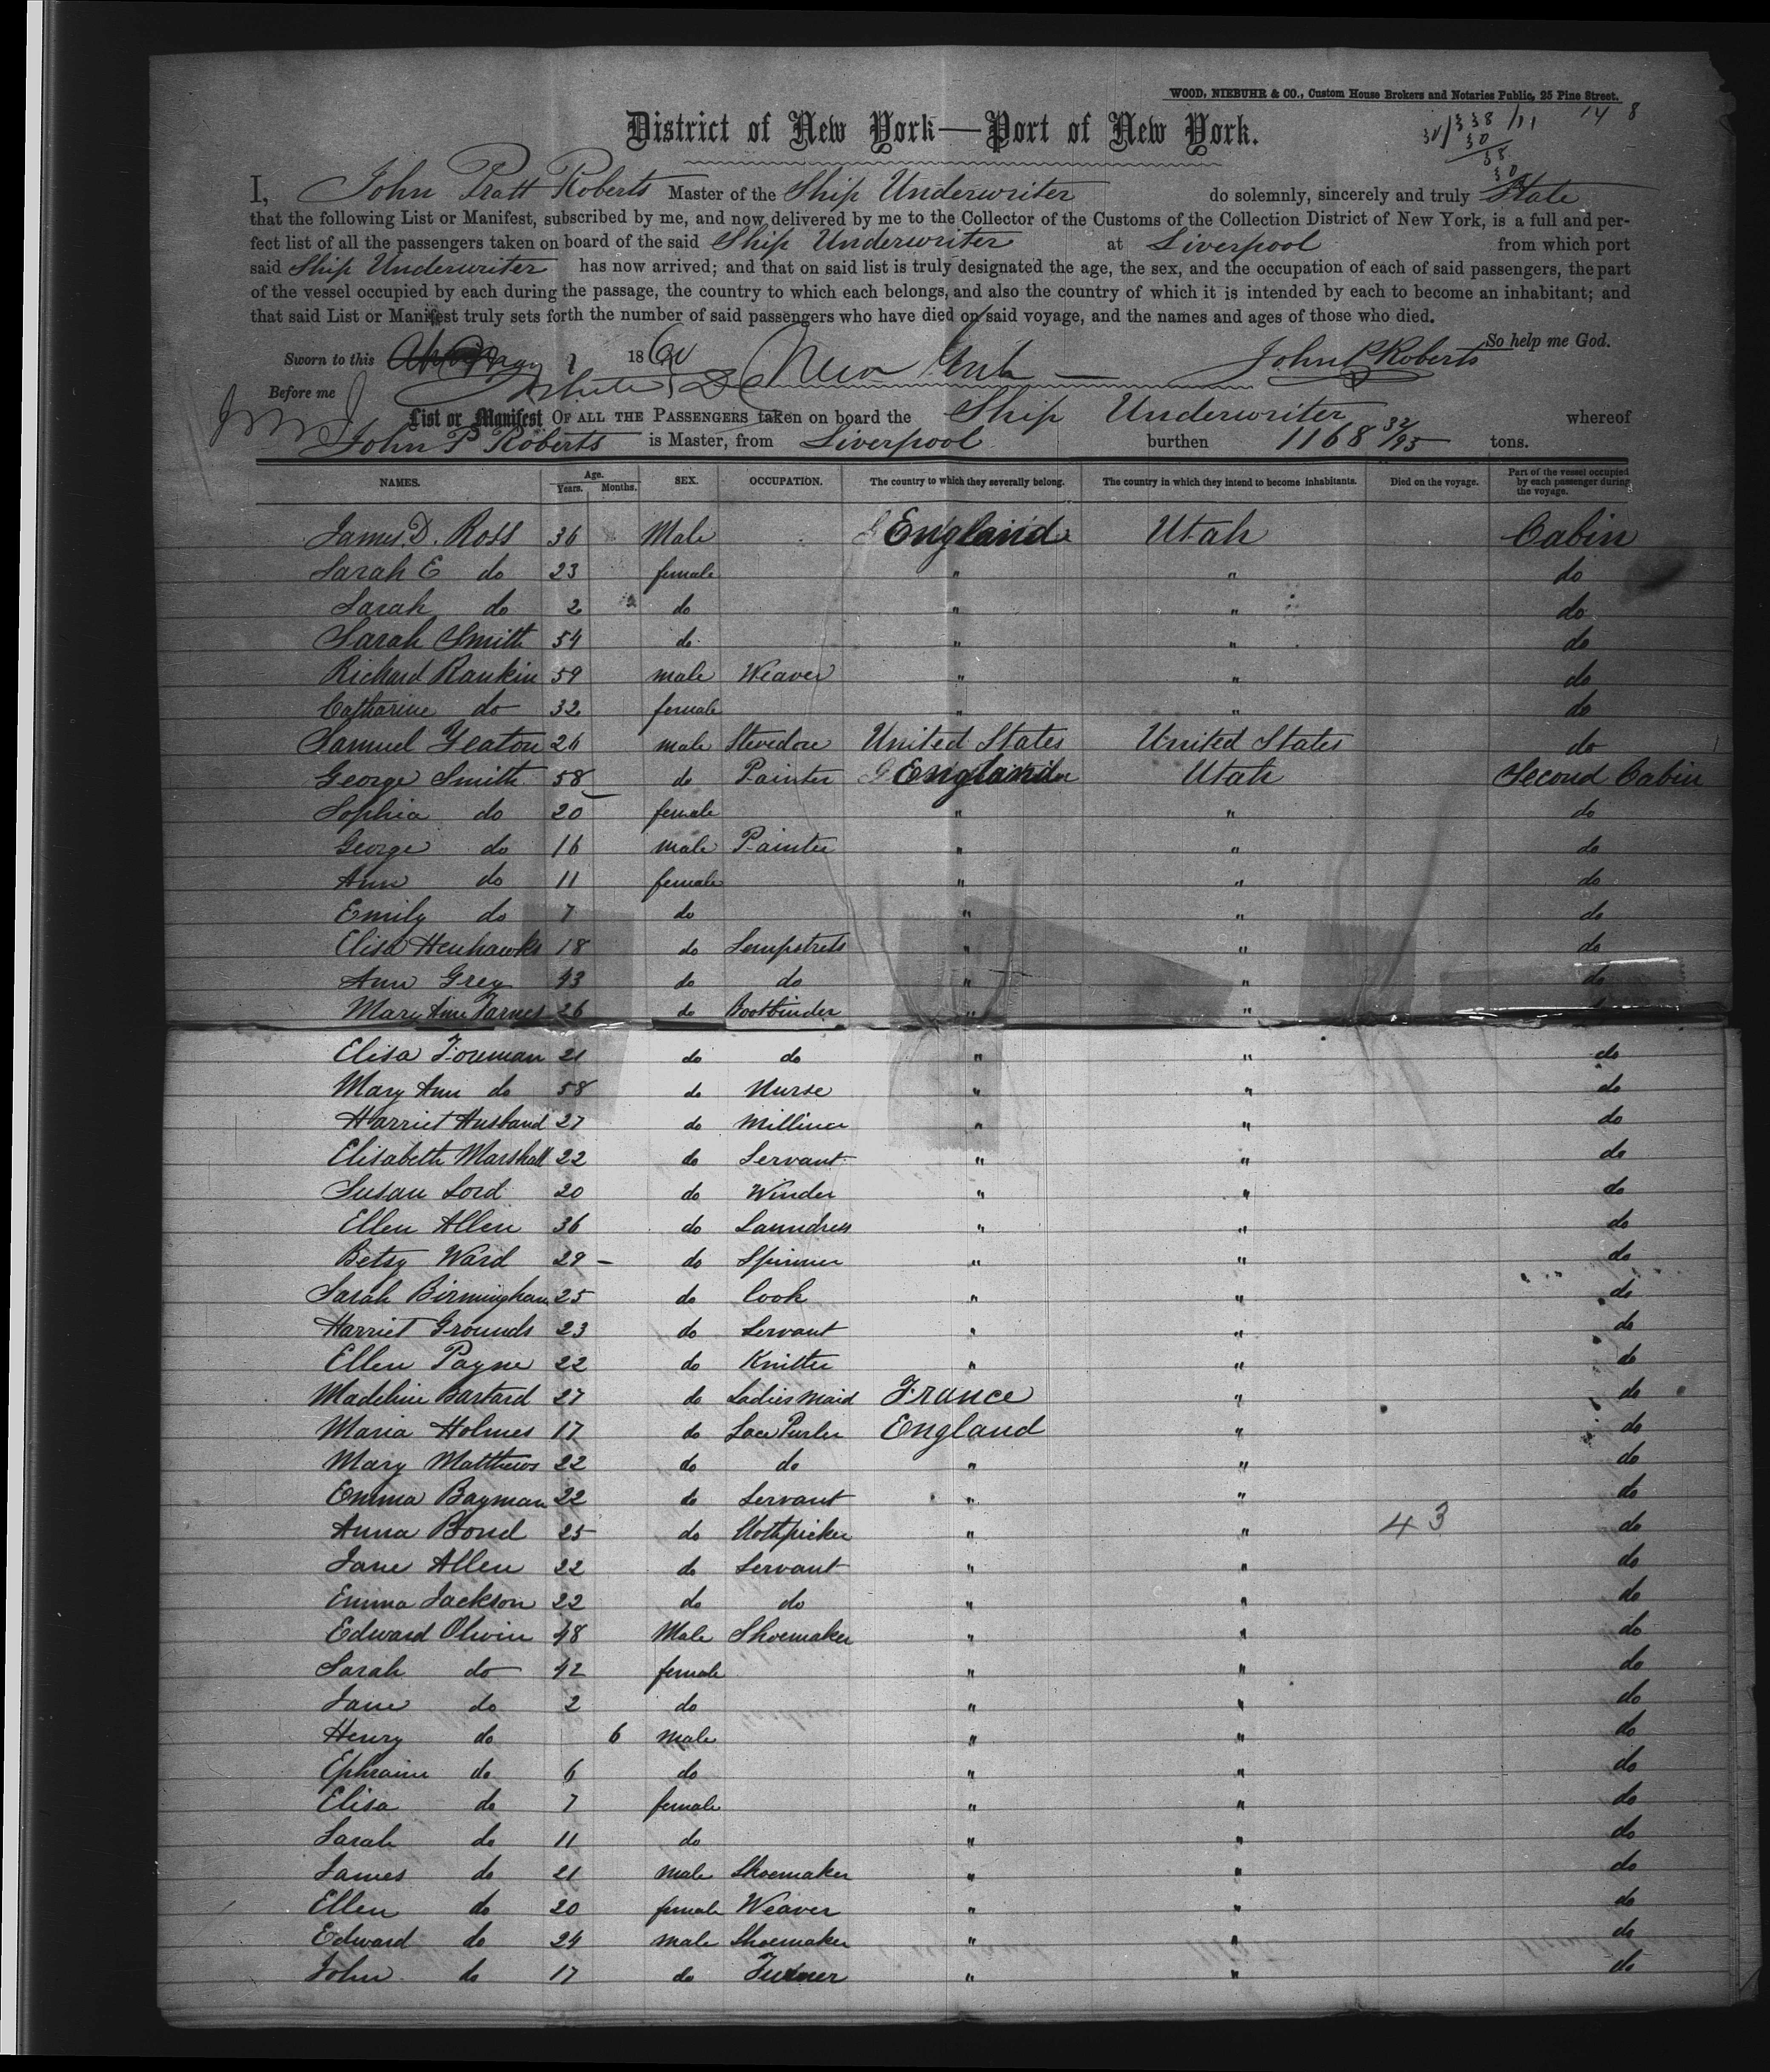 WOOD, NIEBUHR & CO., Custom House Brokers and Notaries Public, 25 Pine Street.
14 8
District of New York—Port of New York.
30/338/11
30
38
30
I, John Pratt Roberts Master of the Ship Underwriter do solemnly, sincerely and truly State
that the following List or Manifest, subscribed by me, and now delivered by me to the Collector of the Customs of the Collection District of New York, is a full and per-
fect list of all the passengers taken on board of the said Ship Underwriter at Liverpool from which port
said Ship Underwriter has now arrived; and that on said list is truly designated the age, the sex, and the occupation of each of said passengers, the part
of the vessel occupied by each during the passage, the country to which each belongs, and also the country of which it is intended by each to become an inhabitant; and
that said List or Manifest truly sets forth the number of said passengers who have died on said voyage, and the names and ages of those who died.
So help me God.
Sworn to this May 1860 New York John P Roberts
Before me
List or Manifest OF ALL THE PASSENGERS taken on board the Ship Underwriter whereof
John P Roberts is Master, from Liverpool burthen 1168 32/95 tons.
NAMES. Age. Years. Months. SEX. OCCUPATION. The country to which they severally belong. The country in which they intend to become inhabitants. Died on the voyage. Part of the vessel occupied by each passenger during the voyage.
James D. Ross 36 Male England Utah Cabin
Sarah E do 23 female " " do
Sarah do 2 do " " do
Sarah Smith 54 do " " do
Richard Rankin 59 male Weaver " " do
Catharine do 32 female " " do
Samuel Yeaton 26 male Stevedore United States United States do
George Smith 58 do Painter England Utah Second Cabin
Sophia do 20 female " " do
George do 16 male Painter " " do
Ann do 11 female " " do
Emily do 7 do " " do
Elisa Henhawks 18 do Sempstress " " do
Ann Grey 43 do do " " do
Mary Ann 26 do Bootbinder " "
Elisa Foreman 21 do do " " do
Mary Ann do 58 do Nurse " " do
Harriet Husband 27 do Milliner " " do
Elisabeth Marshall 22 do Servant " " do
Susan Lord 20 do Winder " " do
Ellen Allen 36 do Laundress " " do
Betsy Ward 29 – do Spinner " " do
Sarah Birmingham 25 do Cook " " do
Harriet Grounds 23 do Servant " " do
Ellen Payne 22 do Knitter " " do
Madeline Bastard 27 do Ladies Maid France " do
Maria Holmes 17 do Lace Purler England " do
Mary Matthews 22 do do " " do
Emma Bayman 22 do Servant " " do
Anna Bond 25 do Clothpicker " " 43 do
Jane Allen 22 do Servant " " do
Emma Jackson 22 do do " " do
Edward Olivin 48 Male Shoemaker " " do
Sarah do 42 female " " do
Jane do 2 do " " do
Henry do 6 male " " do
Ephraim do 6 do " " do
Elisa do 7 female " " do
Sarah do 11 do " " do
James do 21 male Shoemaker " " do
Ellen do 20 female Weaver " " do
Edward do 24 male Shoemaker " " do
John do 17 do Turner " " do